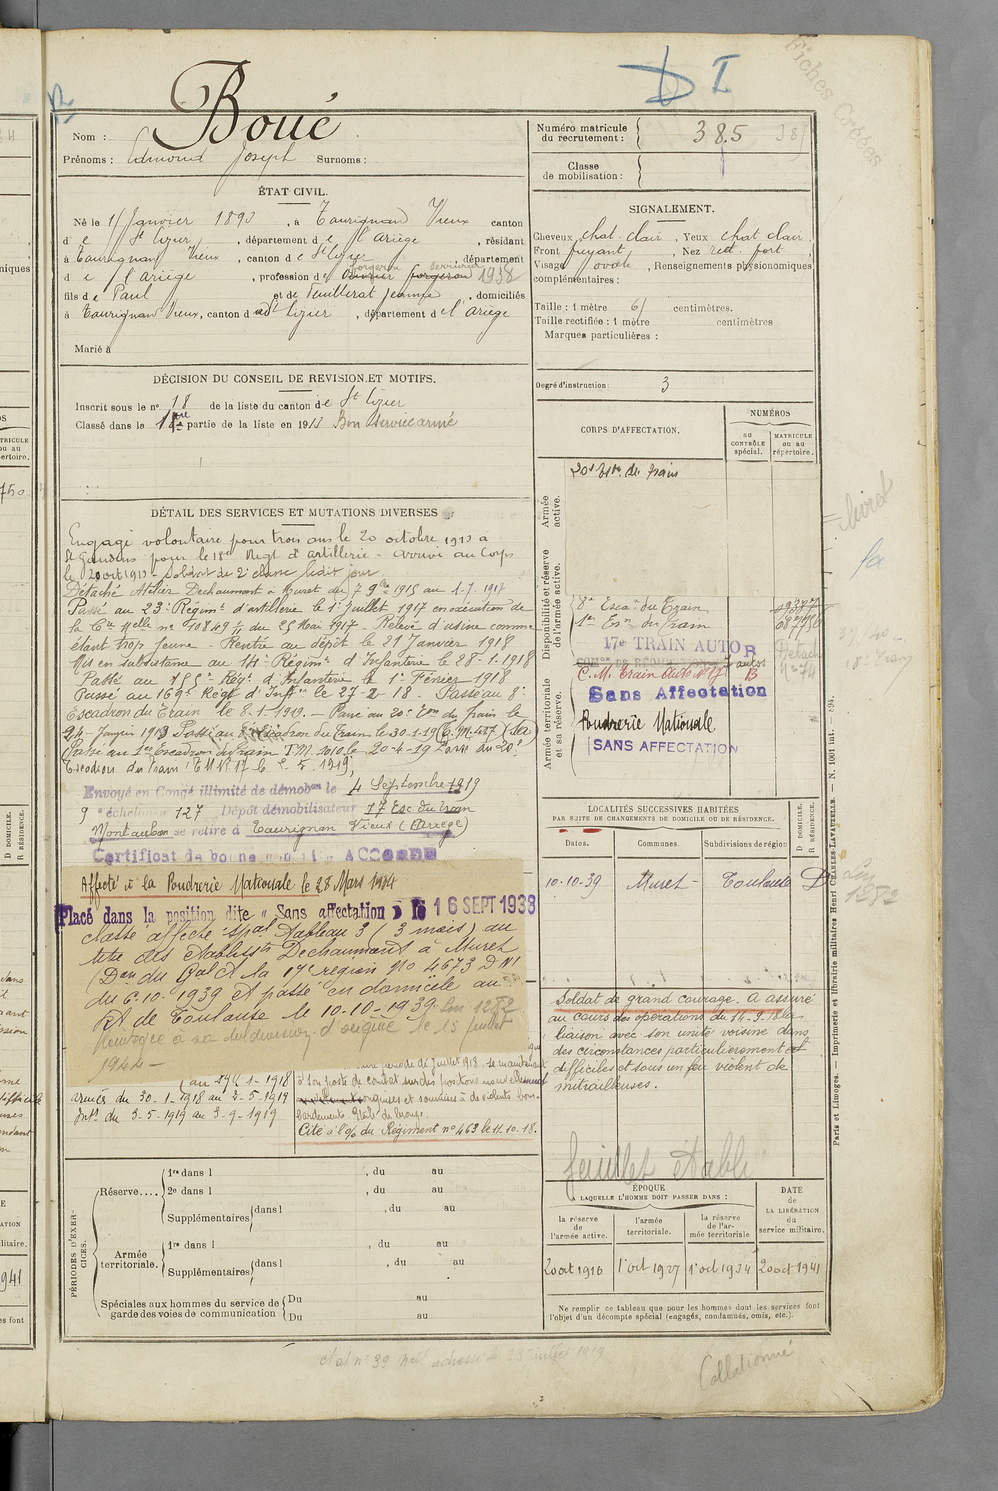 D I
Fiches Créées
Boué
Nom :
Prénoms : Edmond Joseph Surnoms :
Numéro matricule du recrutement : 385
Classe de mobilisation :
ÉTAT CIVIL.
Né le 1er Janvier 1893, à Taurignan Vieux canton
de St Lizier, département de l'Ariège, résidant
à Taurignan Vieux, canton de St Lizier, département
de l'Ariège, profession de forgeron serrurier 1938
fils de Paul et de Feuillerat Jeanne, domiciliés
à Taurignan Vieux, canton de St Lizier, département de l'Ariège
Marié à
SIGNALEMENT.
Cheveux chat. clair, Yeux chat clair,
Front fuyant, Nez rect. fort,
Visage ovale, Renseignements physionomiques
complémentaires :
Taille : 1 mètre 61 centimètres.
Taille rectifiée : 1 mètre centimètres
Marques particulières :
Degré d'instruction : 3
DÉCISION DU CONSEIL DE REVISION ET MOTIFS.
Inscrit sous le n° 18 de la liste du canton de St Lizier
Classé dans le 1ère partie de la liste en 1913 Bon service armé
DÉTAIL DES SERVICES ET MUTATIONS DIVERSES
Engagé volontaire pour trois ans le 20 octobre 1913 à
St Gaudens pour le 18e Regt d'artillerie - arrivé au Corps
le 20 oct 1913 - soldat de 2e classe ledit jour
Détaché Atelier Dechaumont à Muret du 7 9bre 1915 au 1-7-1917
Passé au 23e Régimt d'artillerie le 1er Juillet 1917 en exécution de
la Cre Melle no 10849 du 25 Mai 1917 - Relevé d'usine comme
étant trop jeune - Rentré au dépôt le 21 Janvier 1918
Mis en subsistance au 14e Régimt d'Infanterie le 28-1-1918
Passé au 155e Régt d'Infanterie le 1er Février 1918
Passé au 169e Régt d'Inftie le 27-2-18. Passé au 8e
Escadron du Train le 8-1-1919. - Passé au 20e Eon du train le
24 Janvier 1919 Passé au Escadron du Train le 30-1-19 (T.M. 427)
Passé au 1er Escadron du train T.M. 1010 le 20-4-19 Passé au 20e
Escadron du Train
Envoyé en Congé illimité de démobon le 4 Septembre 1919
9e échelon no 127 Dépôt démobilisateur 17 Esc. du train
Montauban se retire à Taurignan Vieux (Ariège)
Certificat de bonne conduite ACCORDÉ
Affecté à la Poudrerie Nationale le 28 Mars 1934
Placé dans la position dite « Sans affectation » le 16 SEPT 1938
Classé affecté spal Tableau 3 (3 mois) au
titre des Etablists Dechaumont à Muret
(Don du Gal Ct la 17e region No 4673 D M1
du 6-10-1939 et passé en domicile au
RA de Toulouse le 10-10-1939.
Renvoyé à sa subdivision d'origine le 15 juillet
1944 -
au 29-1-1918
armées du 30-1-1918 au 2-5-1919
Intr du 3-5-1919 au 3-9-1919
période de Juillet 1918, se maintenant
à son poste de combat sur des positions
et soumises à de violents bom-
bardements
Cité à l'o/ du Régiment no 463 le 11-10-18.
CORPS D'AFFECTATION.
NUMÉROS
au CONTRÔLE spécial.
MATRICULE ou au répertoire.
Armée active.
20e Eson du train
Disponibilité et réserve de l'armée active.
8e Escon du Train
1er Eson du Train
17e TRAIN AUTO R
C.M. Train Auto No 17 B
Armée territoriale et sa réserve.
Sans Affectation
Poudrerie Nationale
SANS AFFECTATION
livret
fa
LOCALITÉS SUCCESSIVES HABITÉES
PAR SUITE DE CHANGEMENTS DE DOMICILE OU DE RÉSIDENCE.
Dates. Communes. Subdivisions de région
D DOMICILE. R RÉSIDENCE.
10-10-39 Muret Toulouse D
Soldat de grand courage. A assuré
au cours des opérations du 14-9-18 la
liaison avec son unité voisine dans
des circonstances particulièrement
difficiles et sous un feu violent de
mitrailleuses.
feuillet établi
ÉPOQUE
A LAQUELLE L'HOMME DOIT PASSER DANS :
la réserve de l'armée active.
l'armée territoriale.
la réserve de l'armée territoriale
DATE DE LA LIBÉRATION du service militaire.
20 oct 1916 1er oct 1927 1er oct 1934 20 oct 1941
Ne remplir ce tableau que pour les hommes dont les services font
l'objet d'un décompte spécial (engagés, condamnés, omis, etc.).
PÉRIODES D'EXERCICES.
Réserve....
1re dans l , du au
2e dans l , du au
Supplémentaires dans l , du au
Armée territoriale.
1re dans l , du au
Supplémentaires dans l , du au
Spéciales aux hommes du service de
garde des voies de communication
Du au
Du au
Collationné
Paris et Limoges. — Imprimerie et librairie militaires Henri CHARLES-LAVAUZELLE. — N. 1001 int. - 894.